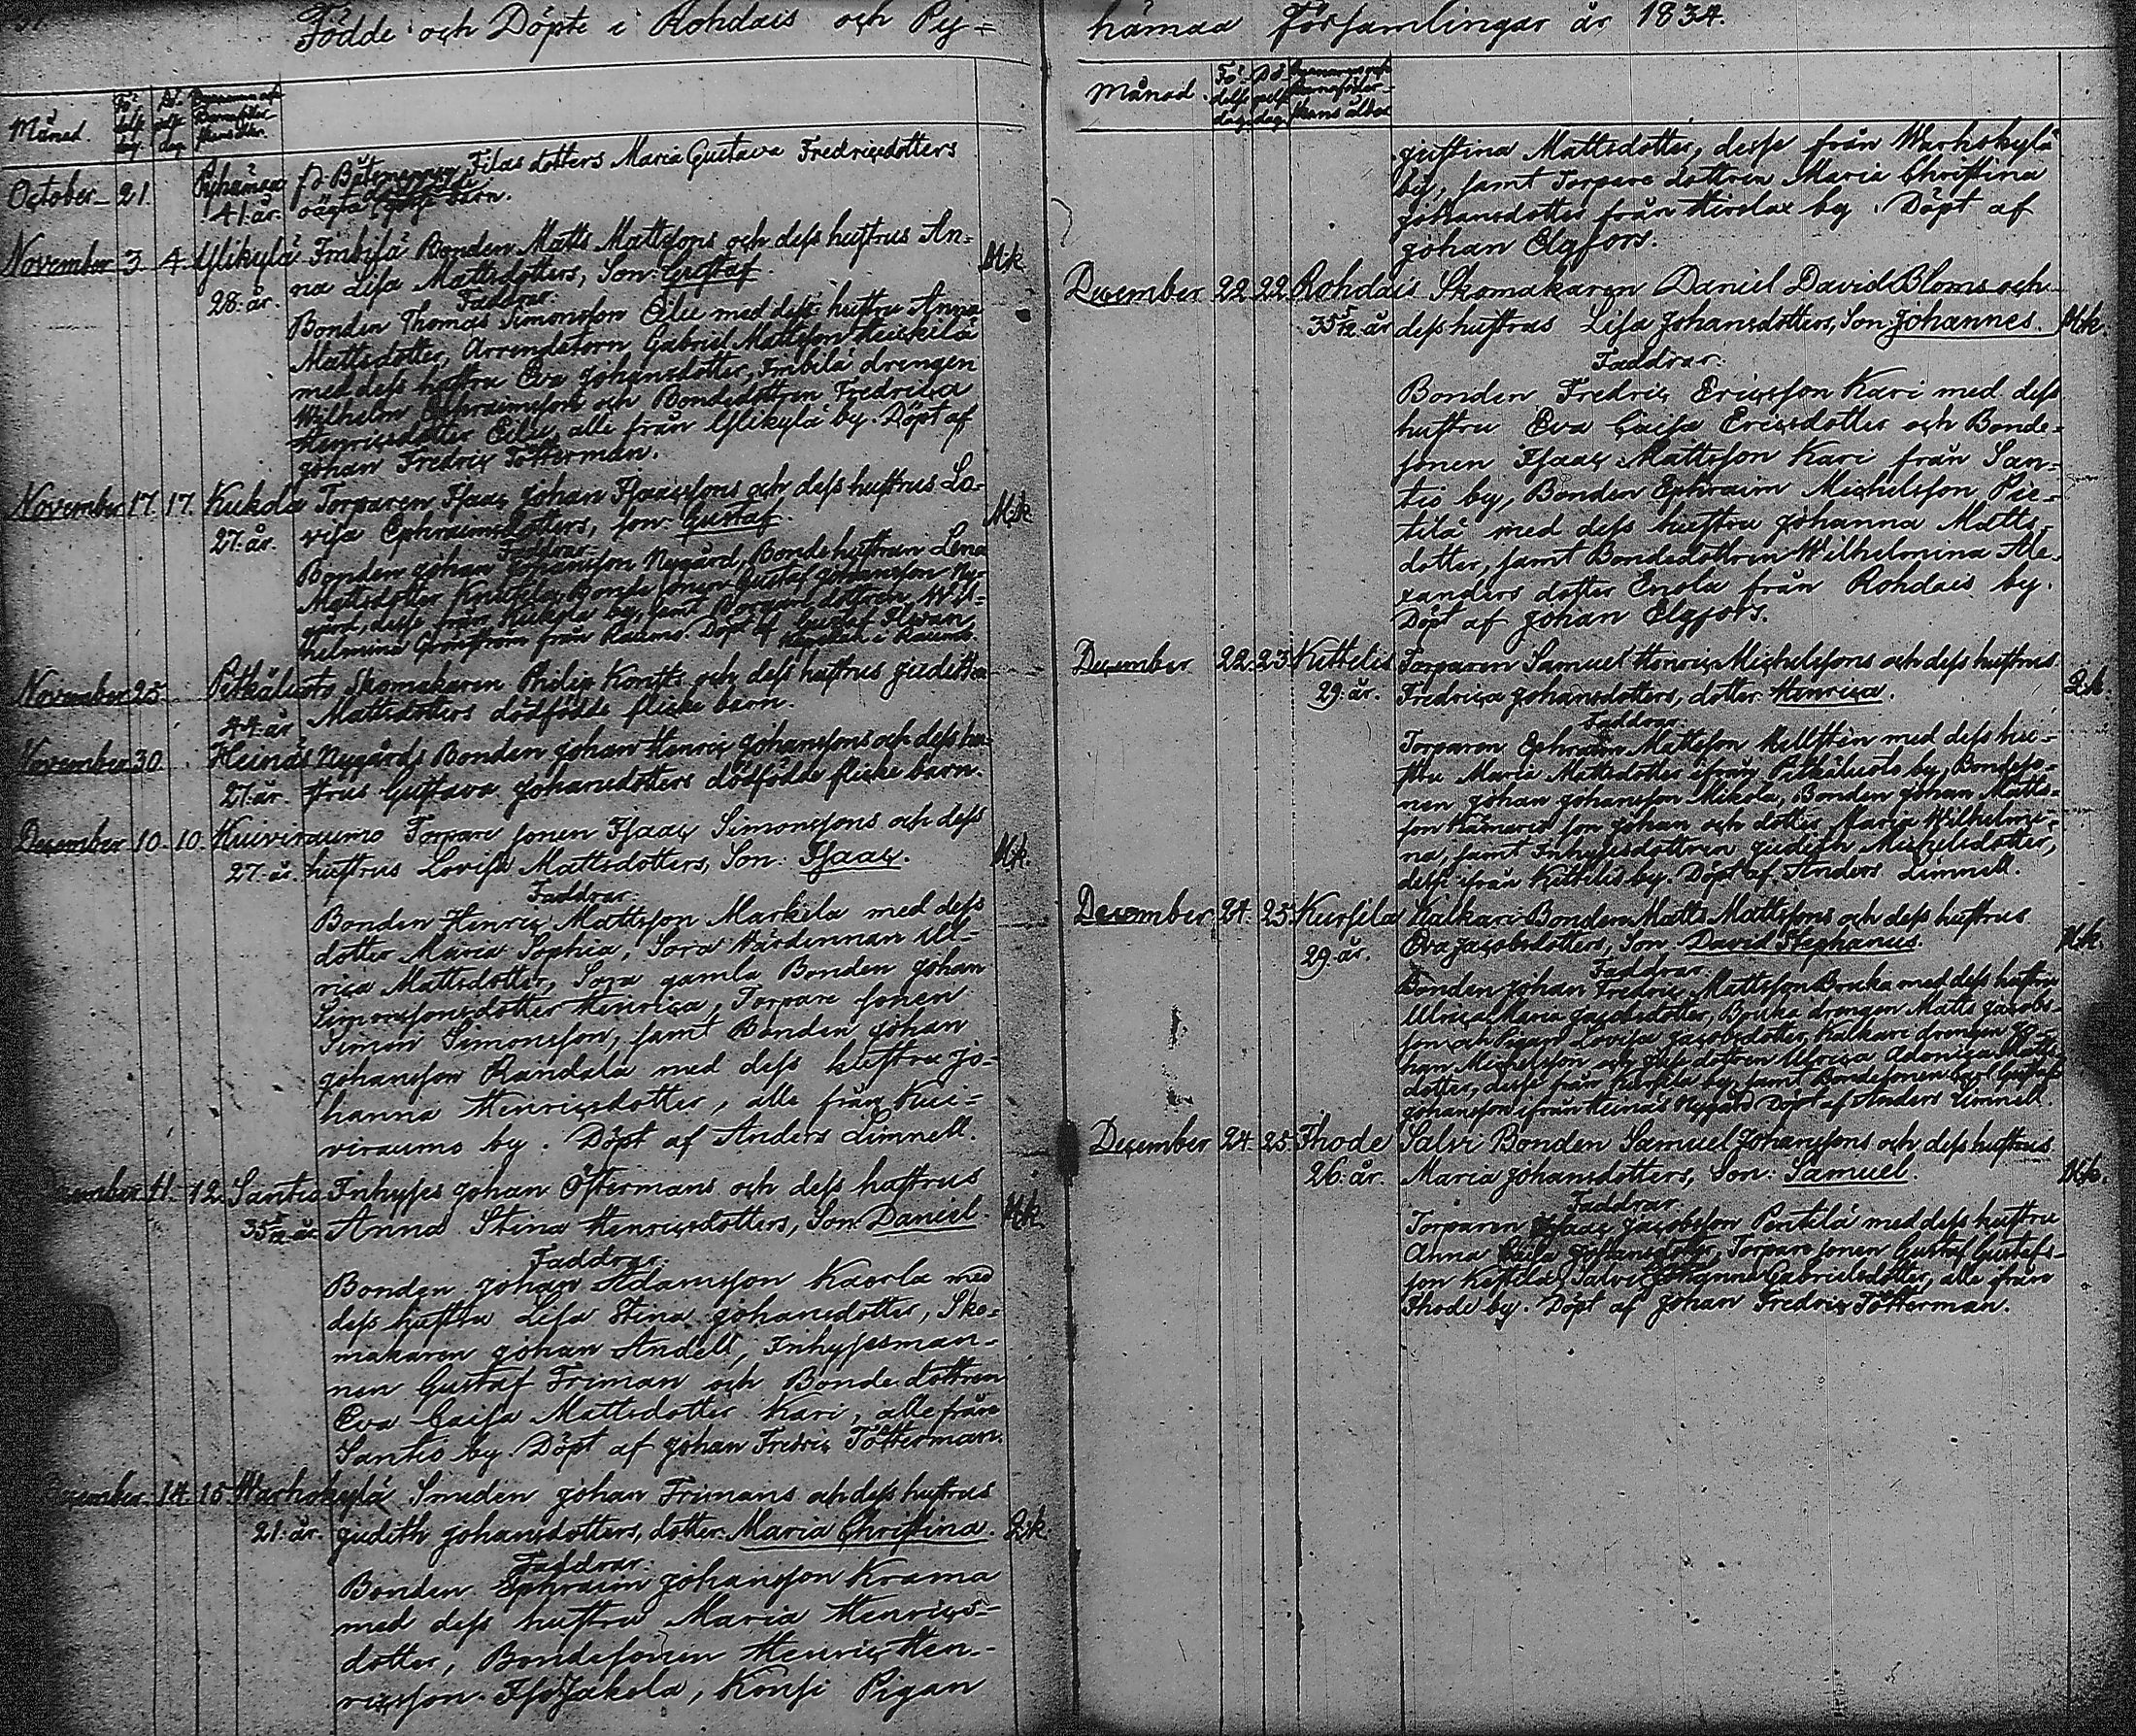 Födde och Döpte i Rohdais och Py=
Månad. Fö- delse dag. Dö- pelse dag
October 21. Pyhämaa fd Båtsmannen Filas dotters Maria Gustava Fredricsdotters
41. år. oägta barn.
November 3. 4. Ylikylä Imbilä Bonden Matts Mattssons och dess hustrus An=
28. år. na Lisa Mattsdotters, Son: Gustaf. Mk
Faddrar
Bonden Thomas Simonsson Eilu med dess hustru Anna
Mattsdotter, Arrendatorn Gabriel Mattsson Heickilä
med dess hustru Eva Johansdotter, Imbilä drengen
Wilhelm Ephraimsson och Bondedottren Fredrica
Henricsdotter Eilu, alle från Ylikylä by. Döpt af
Johan Fredric Tötterman.
November 17. 17. Kukola Torparen Isaac Johan Isaacssons och dess hustrus Lo-
27. år. visa Ephraimsdotters, son: Gustaf. M.k
Faddrar.
Bonden Johan Johansson Nygård, Bondehustrun Lena
Mattsdotter Knutila, Bonde sonen Gustaf Johansson Ny-
gård, desse från Kukola by, samt Borgare dottren Wil-
helmina Grönstrom från Raumo. Döpt af Gustaf
i Raumo.
November 25 Pitkäluoto Skomakaren Philip Kontts och dess hustrus Judith
44 år Mattsdotters dödfödde flicke barn.
November 30 Heinäs Nygårds Bonden Johan Henric Johanssons och dess hu-
27. år. strus Gustava Johansdotters dödfödde flicke barn.
December 10. 10. Kuiviraumo Torpare sonen Isaac Simonssons och dess
27. år. hustrus Lovisa Mattsdotters, Son: Isaac. Mk
Faddrar.
Bonden Henric Mattsson Markila med dess
dotter Maria Sophia, Sora Wärdinnan Ul-
rica Mattsdotter, Sora gamla Bonden Johan
Simonssons dotter Henrica, Torpare sonen
Simon Simonsson, samt Bonden Johan
Johansson Randala med dess hustru Jo-
hanna Henricsdotter, alle från Kui-
viraumo by. Döpt af Anders Limnell.
December 11. 12. Santio Inhyses Johan Östermans och dess hustrus
35 5/12 år. Anna Stina Henricsdotters, Son: Daniel. Mk
Faddrar.
Bonden Johan Adamsson Kaorla med
dess hustru Lisa Stina Johansdotter, Sko-
makaren Johan Andell, Inhysesman-
nen Gustaf Friman och Bonde dottren
Eva Caisa Mattsdotter Kari, alle från
Santio by. Döpt af Johan Fredric Tötterman.
December 14. 15. Warhokylä Smeden Johan Frimans och dess hustrus
21. år. Judith Johansdotters, dotter: Maria Christina. Q.k.
Faddrar.
Bonden Ephraim Johansson Krama
med dess hustru Maria Henrics-
dotter, Bondesonen Henric Hen-
ricsson Isojakola, Konsi Pigan
hämaa Församlingar år 1834.
Månad. Fö- delse dag. Dö- pelse dag.
Justina Mattsdotter, desse från Warhokylä
by, samt Torpare dottren Maria Christina
Johansdotter från Hirslax by. Döpt af
Johan Elgfors.
December 22. 22. Rohdais Skomakaren Daniel David Bloms och
35 5/12 år dess hustrus Lisa Johansdotters, Son Johannes. Mk
Faddrar.
Bonden Fredric Ericsson Kari med dess
hustru Eva Caisa Ericsdotter och Bonde-
sonen Isaac Mattsson Kari från San-
tio by, Bonden Ephraim Michelsson Pie-
tilä med dess hustru Johanna Matts-
dotter, samt Bondedottren Wilhelmina Ale-
xanders dotter Enola från Rohdais by.
Döpt af Johan Elgfors.
December 22. 23. Kettelis Torparen Samuel Henric Michelssons och dess hustrus
29. år. Fredrica Johansdotters, dotter: Henrica. Q.k.
Faddrar.
Torparen Ephraim Mattsson Hellstén med dess hu-
stru Maria Mattsdotter ifrån Pitkäluoto by, Bondeso-
nen Johan Johansson Mikola, Bonden Johan Matts-
son Hämaris son Johan och dotter Maria Wilhelmi-
na, samt Inhysesdottren Judith Michelsdotter,
desse ifrån Kettelis by. Döpt af Anders Limnell.
December 24. 25. Kursila Kalkari Bonden Matts Mattssons och dess hustrus
29. år. Eva Jacobsdotters, Son David Stephanus. M.k.
Faddrar
Bonden Johan Fredric Mattsson Bruka med dess hustru
Ulrica Maria Jacobsdotter, Bruka drengen Matts Jacobs-
son och Pigan Lovisa Jacobsdotter, Kalkari drengen Jo-
han Michelsson och dottren Ulrica
dotter, desse från Kursila by, samt Bondesonen Carl Gustaf
Johansson ifrån Heinäs Nygård. Döpt af Anders Limnell.
December 24. 25. Ihode Salvi Bonden Samuel Johanssons och dess hustrus
26. år. Maria Johansdotters, Son: Samuel. Mk.
Faddrar.
Torparen Isaac Jacobsson Pentilä med dess hustru
Anna Caisa Johansdotter, Torpare sonen Gustaf Gustafs-
son Kestilä, Salvi Johanna Gabrielsdotter, alle från
Ihode by. Döpt af Johan Fredric Tötterman.